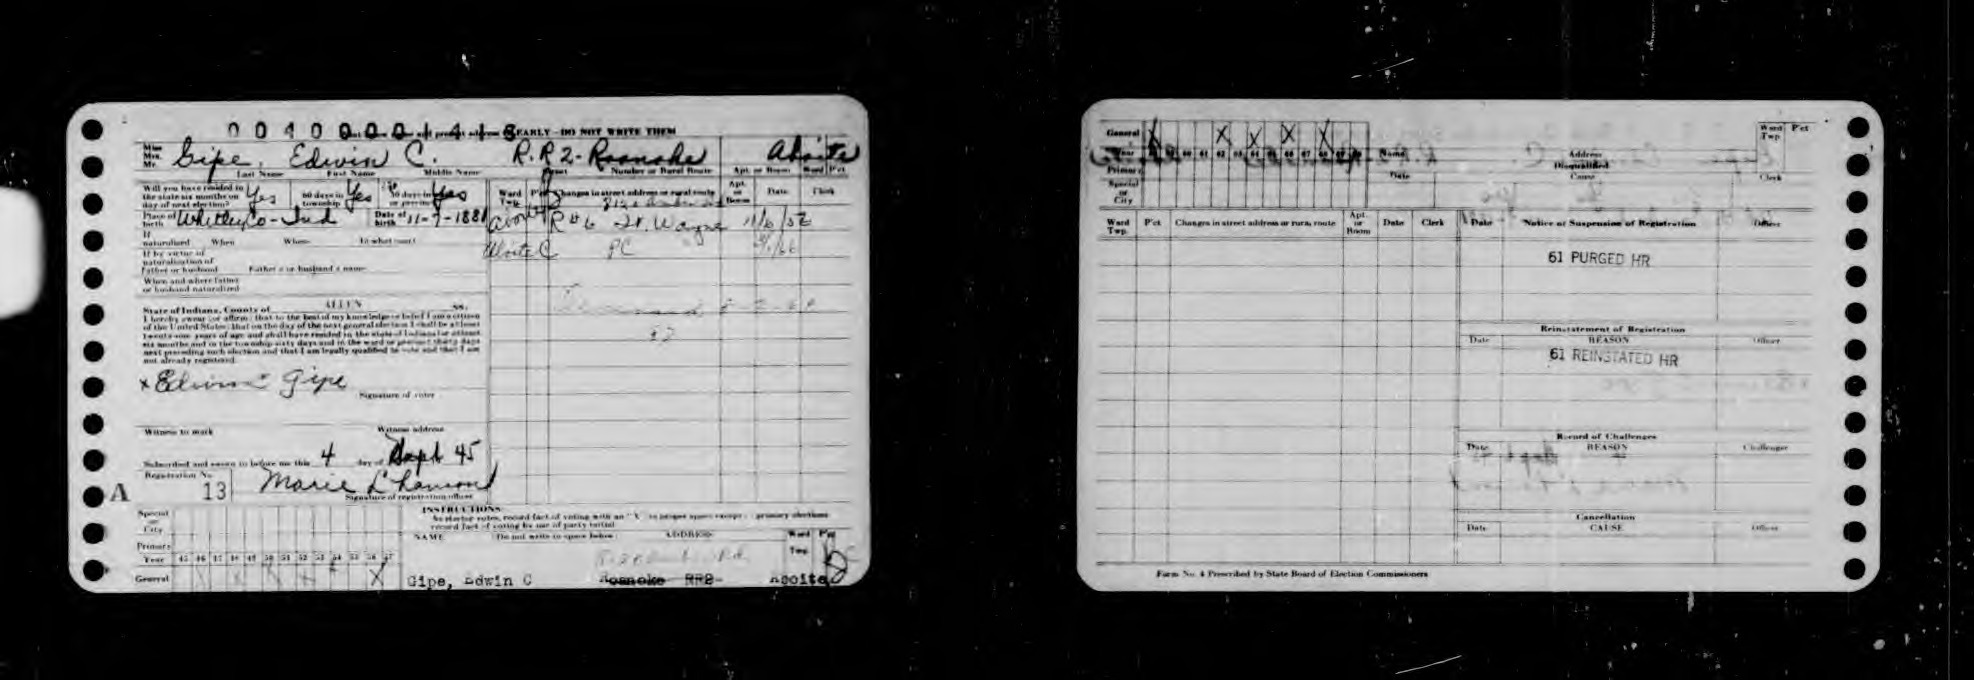 00400001418 EARLY - DO NOT WRITE THEM
Miss
Mrs.
Mr.
Gipe, Edwin C. R.R 2 - Roanoke Aboite
Last Name First Name Middle Name Street Number or Rural Route Apt. or Room Ward P'ct
Will you have resided in
the state six months on
day of next election? Yes
60 days in
township Yes
30 days in
or precinct Yes
Place of
birth Whitley Co - Ind Date of
birth 11-7-1881
If
naturalized When Where In what court
If by virtue of
naturalization of
Father or husband Father's or husband's name
When and where father
or husband naturalized
State of Indiana, County of ALLEN ss.
I hereby swear (or affirm) that to the best of my knowledge or belief I am a citizen
of the United States; that on the day of the next general election I shall be at least
twenty-one years of age and shall have resided in the state of Indiana for at least
six months and in the township sixty days and in the ward or precinct thirty days
next preceding such election and that I am legally qualified to vote and that I am
not already registered.
x Edwin Gipe
Signature of voter
Witness to mark Witness address
Subscribed and sworn to before me this 4 day of Sept 45
Registration No.
A 13 Marie
Signature of registration officer
Ward
Twp. P'ct Changes in street address or rural route Apt.
or
Room Date Clerk
Aboite R #6 Ft. Wayne 11/6/52
Aboite C PC
INSTRUCTIONS
record fact of voting by use of party initial
NAME Do not write in space below ADDRESS Ward
Twp. P'ct
Special
or
City
Primary
Year 45 46 47 48 49 50 51 52 53 54 55 56 57
General X X X X X
Gipe, Edwin C Roanoke RR2- Aboite
General X X X X X
Year 60 61 62 63 64 65 66 67 68 69
Primary
Special
or
City
Name Address Ward
Twp. P'ct
Disqualified
Date Cause Clerk
Ward
Twp. P'ct Changes in street address or rural route Apt.
or
Room Date Clerk Date Notice or Suspension of Registration Officer
61 PURGED HR
Reinstatement of Registration
Date REASON Officer
61 REINSTATED HR
Record of Challenges
Date REASON Challenger
Cancellation
Date CAUSE Officer
Form No. 4 Prescribed by State Board of Election Commissioners